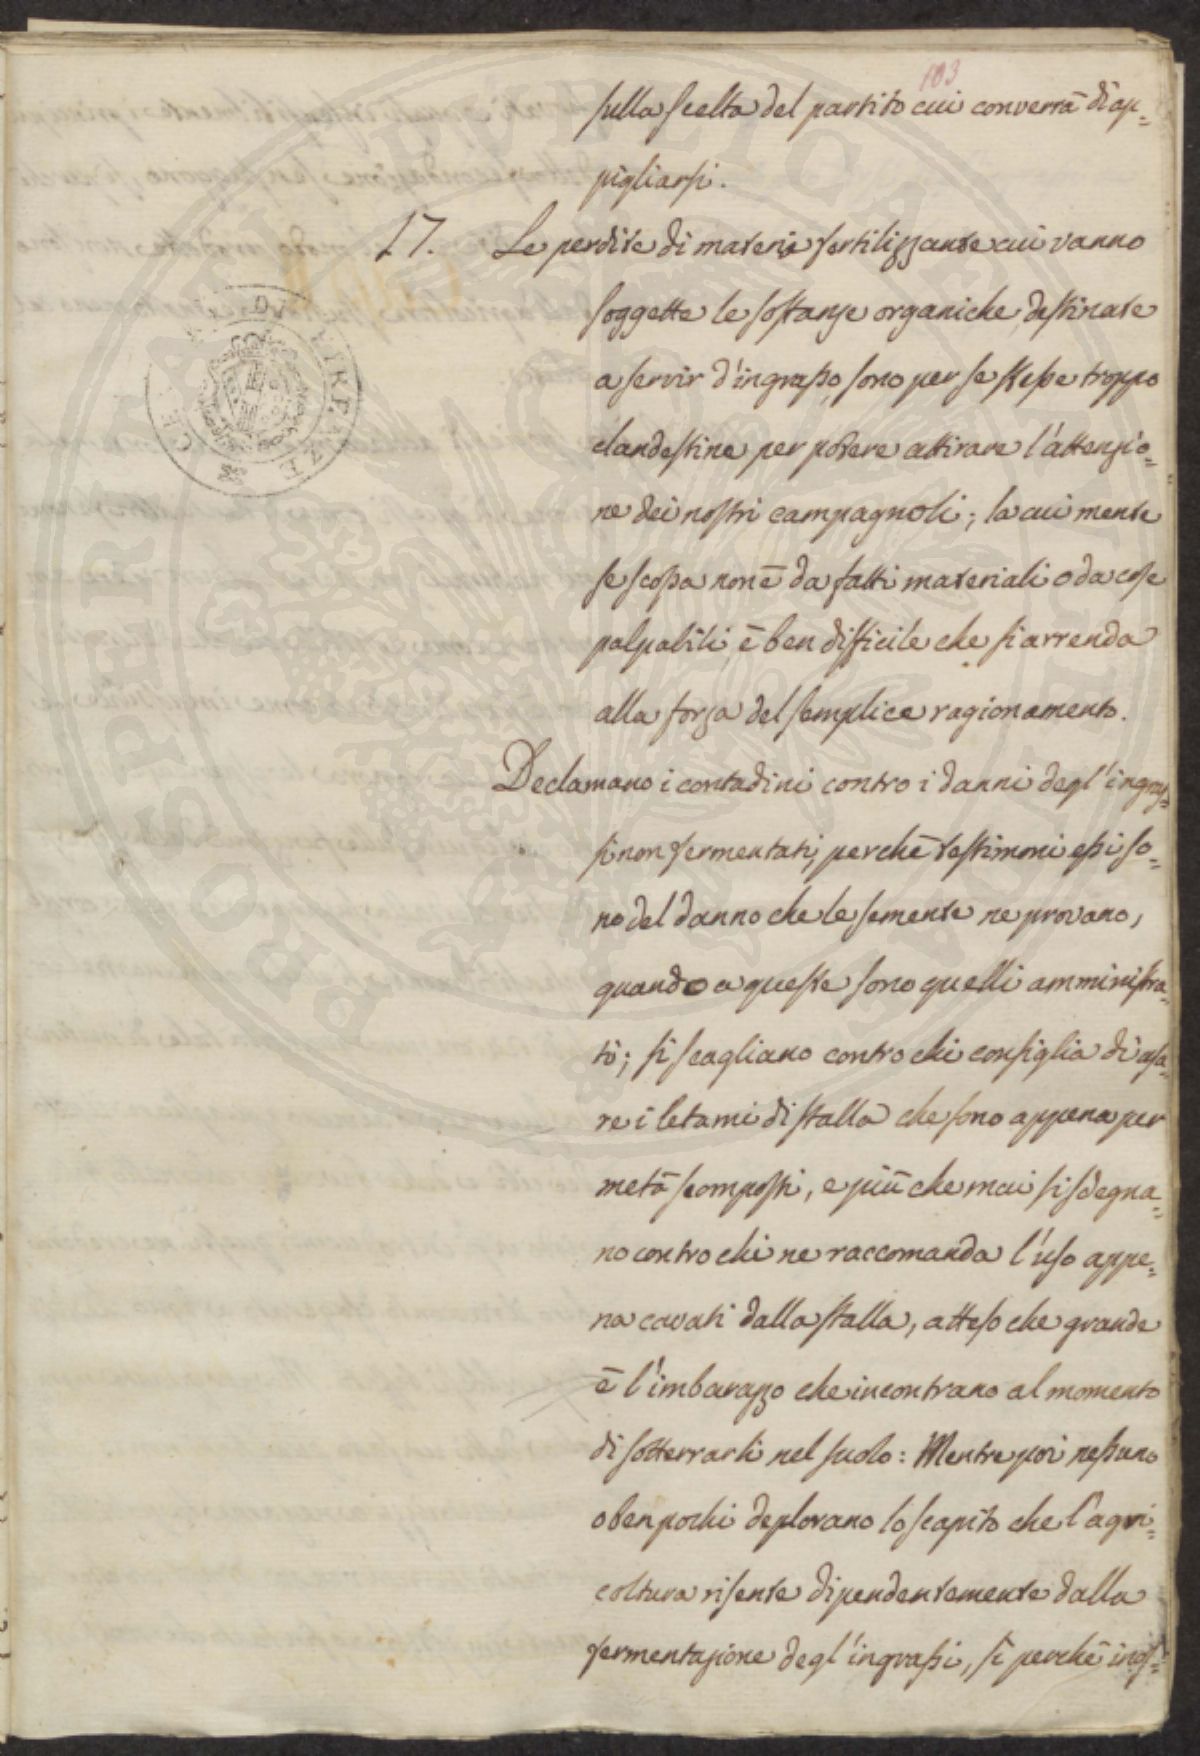 103
sulla scelta del partito cui converrà di ap=
pigliarsi.
17. Le perdite di materia fertilizzante cui vanno
soggette le sostanze organiche destinate
a servir d'ingrasso, sono per se stesse troppo
clandestine per potere attirare l'attenzio=
ne dei nostri campagnoli; la cui mente
se scossa non è da fatti materiali o da cose
palpabili, è ben difficile che si arrenda
alla forza del semplice ragionamento.
Declamano i contadini contro i danni degl'ingras=
si non fermentati, perchè testimoni essi so=
no del danno che le semente ne provano,
quando a queste sono quelli amministra=
ti; si scagliano contro chi consiglia di usa=
re i letami di stalla che sono appena per
metà scomposti, e più che mai si sdegna=
no contro chi ne raccomanda l'uso appe=
na cavati dalla stalla, atteso che grande
è l'imbarazzo che incontrano al momento
di sotterrarli nel suolo: Mentre poi nessuno
o ben pochi deplorano lo scapito che l'agri=
coltura risente dipendentemente dalla
fermentazione degl'ingrassi, sì perchè ins=